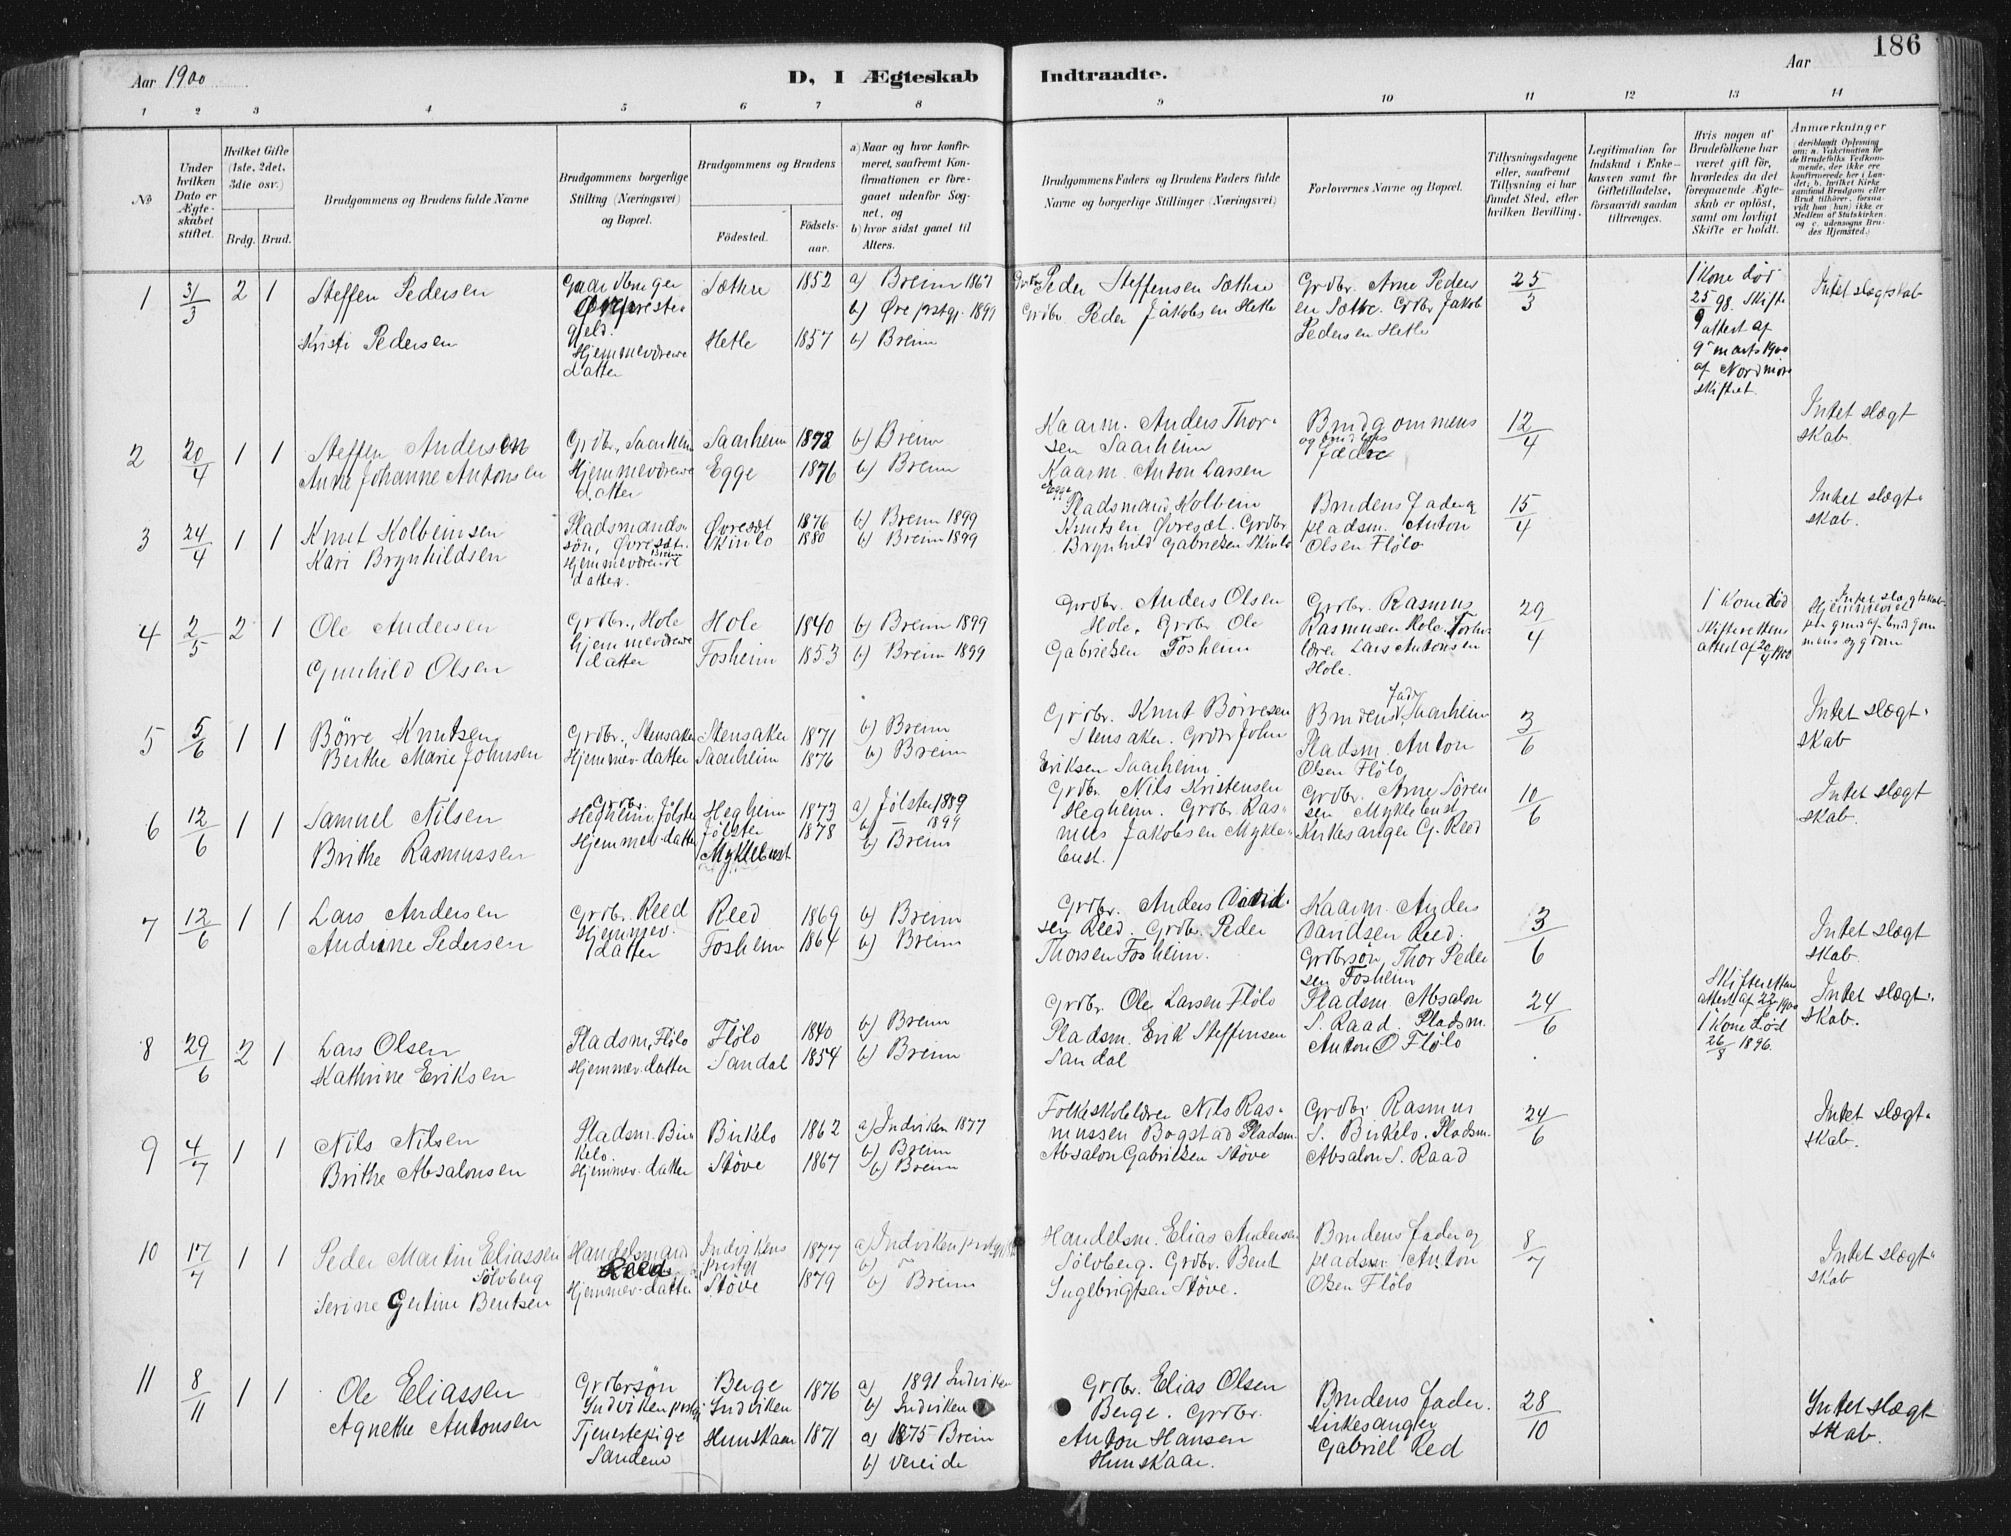 186
Aar 1900
D, I Ægteskab Indtraadte.
Aar
1 2 3 4 5 6 7 8 9 10 11 12 13 14
No
Under hvilken Dato er Ægteskabet stiftet.
Hvilket Gifte (1ste, 2det, 3die osv.)
Brdg. Brud.
Brudgommens og Brudens fulde Navne
Brudgommens borgerlige Stilling (Næringsvei) og Bopæl.
Brudgommens og Brudens
Fødested.
Fødselsaar.
a) Naar og hvor konfirmeret, saafremt Konfirmationen er foregaaet udenfor Sognet, og
b) hvor sidst gaaet til Alters.
Brudgommens Faders og Brudens Faders fulde Navne og borgerlige Stillinger (Næringsvei)
Forlovernes Navne og Bopæl.
Tillysningsdagene eller, saafremt Tillysning ei har fundet Sted, efter hvilken Bevilling.
Legitimation for Indskud i Enkekassen samt for Giftetilladelse, forsaavidt saadan tiltrænges.
Hvis nogen af Brudefolkene har været gift før, hvorledes da det foregaaende Ægteskab er opløst, samt om lovligt Skifte er holdt.
Anmærkninger (deriblandt Oplysning om: a. Vakcination for de Brudefolks Vedkommende, der ikke ere konfirmerede her i Landet; b. hvilket Kirkesamfund Brudgom eller Brud tilhører, forsaavidt han (hun) ikke er Medlem af Statskirken og c. udensogns Brudes Hjemsted.)
1 31/3 2 1
Steffen Pedersen
Kristi Pedersen
Gaardbruger
Øre præste
gjeld.
Hjemmeværende
datter
Sæthre 1852
Hetle 1857
a) Breim 1867
b) Øre prstgj. 1899
b) Breim
Grdbr. Peder Steffensen Sæthre
Grdbr. Peder Jakobsen Hetle
Grdbr. Arne Peders
en Sætre. Grdbr Jakob
Pedersen Hetle
25/3
1 Kone død
attest af
9 marts 1900
af Nordmøre
skifteret.
Intet slægtskab
2 20/4 1 1
Steffen Andersen
Anne Johanne Antonsen
Grdbr. Saarheim
Hjemmeværende
datter
Saarheim 1878
Egge 1876
b) Breim
b) Breim
Kaarm. Anders Thor-
sen Saarheim
Kaarm. Anton Larsen
Egge
Brudgommens
og brudens
fædre
12/4
Intet slægt
skab.
3 24/4 1 1
Knut Kolbeinsen
Kari Brynhildsen
Pladsmands-
søn, Øvresæt.
Breim
Hjemmeværende
datter.
Øvresæt 1876
Skinlo 1880
b) Breim 1899
b) Breim 1899
Pladsmand Kolbein
Knutsen Øvresæt. Grdbr
Brynhild Gabrielsen Skinlo
Brudens fader og
pladsm. Anton
Olsen Flølo
15/4
Intet slægt-
skab.
4 2/5 2 1
Ole Andersen
Gunhild Olsen
Grdbr., Hole
hjemmeværende
datter
Hole 1840
Fosheim 1853
b) Breim 1899
b) Breim 1899
Grdbr. Anders Olsen
Hole. Grdbr Ole
Gabrielsen Fosheim
Grdbr. Rasmus
Rasmusen Hole.
Lars Antonsen
Hole.
29/4
1 Kone død
Skifterettens
attest af 20/4 1900
Intet slægtskab
Hjemmeviet
paa grund af brudgom
mens sygdom
5 5/6 1 1
Børre Knutsen
Berthe Marie Johnsen
Grdbr., Stensaker
Hjemmev. datter
Stensaker 1871
Saarheim 1876
b) Breim
b) Breim
Grdbr. Knut Børresen
Stensaker. Grdbr John
Eriksen Saarheim
Brudens fader Saarheim
Pladsm. Anton
Olsen Flølo
3/6
Intet slægt-
skab
6 12/6 1 1
Samuel Nilsen
Brithe Rasmussen
Grdbr.
Hegheim, Jølster
Hjemmev. datter
Hegheim 1873
Jølster 1878
Myklebust
a) Jølster 1889
b) — 1899
b) Breim
Grdbr. Nils Kristensen
Hegheim. Grdbr. Ras-
mus Jakobsen Mykle-
bust.
Grdbr. Arne Søren
sen Myklebust
Kirkesanger G. Reed
10/6
Intet slægt
skab.
7 12/6 1 1
Lars Andersen
Andrine Pedersen
Grdbr. Reed
Hjemmev.
datter
Reed 1869
Fosheim 1864
b) Breim
b) Breim
Grdbr. Anders David-
sen Reed. Grdbr. Peder
Thorsen Fosheim.
Kaarm. Anders
Davidsen Reed.
Grdbrsøn Thor Peder
sen Fosheim
3/6
Intet slægt
skab.
8 29/6 2 1
Lars Olsen
Kathrine Eriksen
Pladsm. Flølo
Hjemmev. datter
Flølo 1840
Sandal 1854
b) Breim
b) Breim
Grdbr. Ole Larsen Flølo
Pladsm. Erik Steffensen
Sandal
Pladsm. Absalon
S. Raad. Pladsm.
Anton O Flølo
24/6
Skifterettens
attest af 22/6 1900
1 Kone død
26/8 1896.
Intet slægt-
skab.
9 4/7 1 1
Nils Nilsen
Brithe Absalonsen
Pladsm. Bir
kelo.
Hjemmev. datter
Birkelo 1862
Støve 1867
a) Indviken 1877
b) Breim
b) Breim
Folkeskolelærer Nils Ras-
mussen Bogstad Pladsm.
Absalon Gabrielsen Støve
Grdbr Rasmus
S. Birkelo. Pladsm.
Absalon S. Raad
24/6
Intet slægt-
skab.
10 17/7 1 1
Peder Martin Eliassen
Sølvberg
Serine Gertine Bentsen
Handelsmand
Reed
Hjemmev. datter
Indvikens
prestgj. 1877
Støve 1879
a) Indviken
b) —
b) Breim
Handelsm. Elias Andersen
Sølvberg. Grdbr. Bent
Ingebrigtsen Støve.
Brudens fader og
pladsm Anton
Olsen Flølo
8/7
Intet slægt-
skab
11 8/11 1 1
Ole Eliassen
Agnethe Antonsen
Grdbrsøn
Indviken prstgj
Tjenestepige
Sandene
Berge 1876
Indviken
Hunskaar 1871
a) 1891 Indviken
b) Indviken
a) 1875 Breim
b) Vereide
Grdbr. Elias Olsen
Berge. Grdbr.
Anton Hansen
Hunskaar.
Brudens fader.
Kirkesanger
Gabriel Red
28/10
Intet slægt
skab.